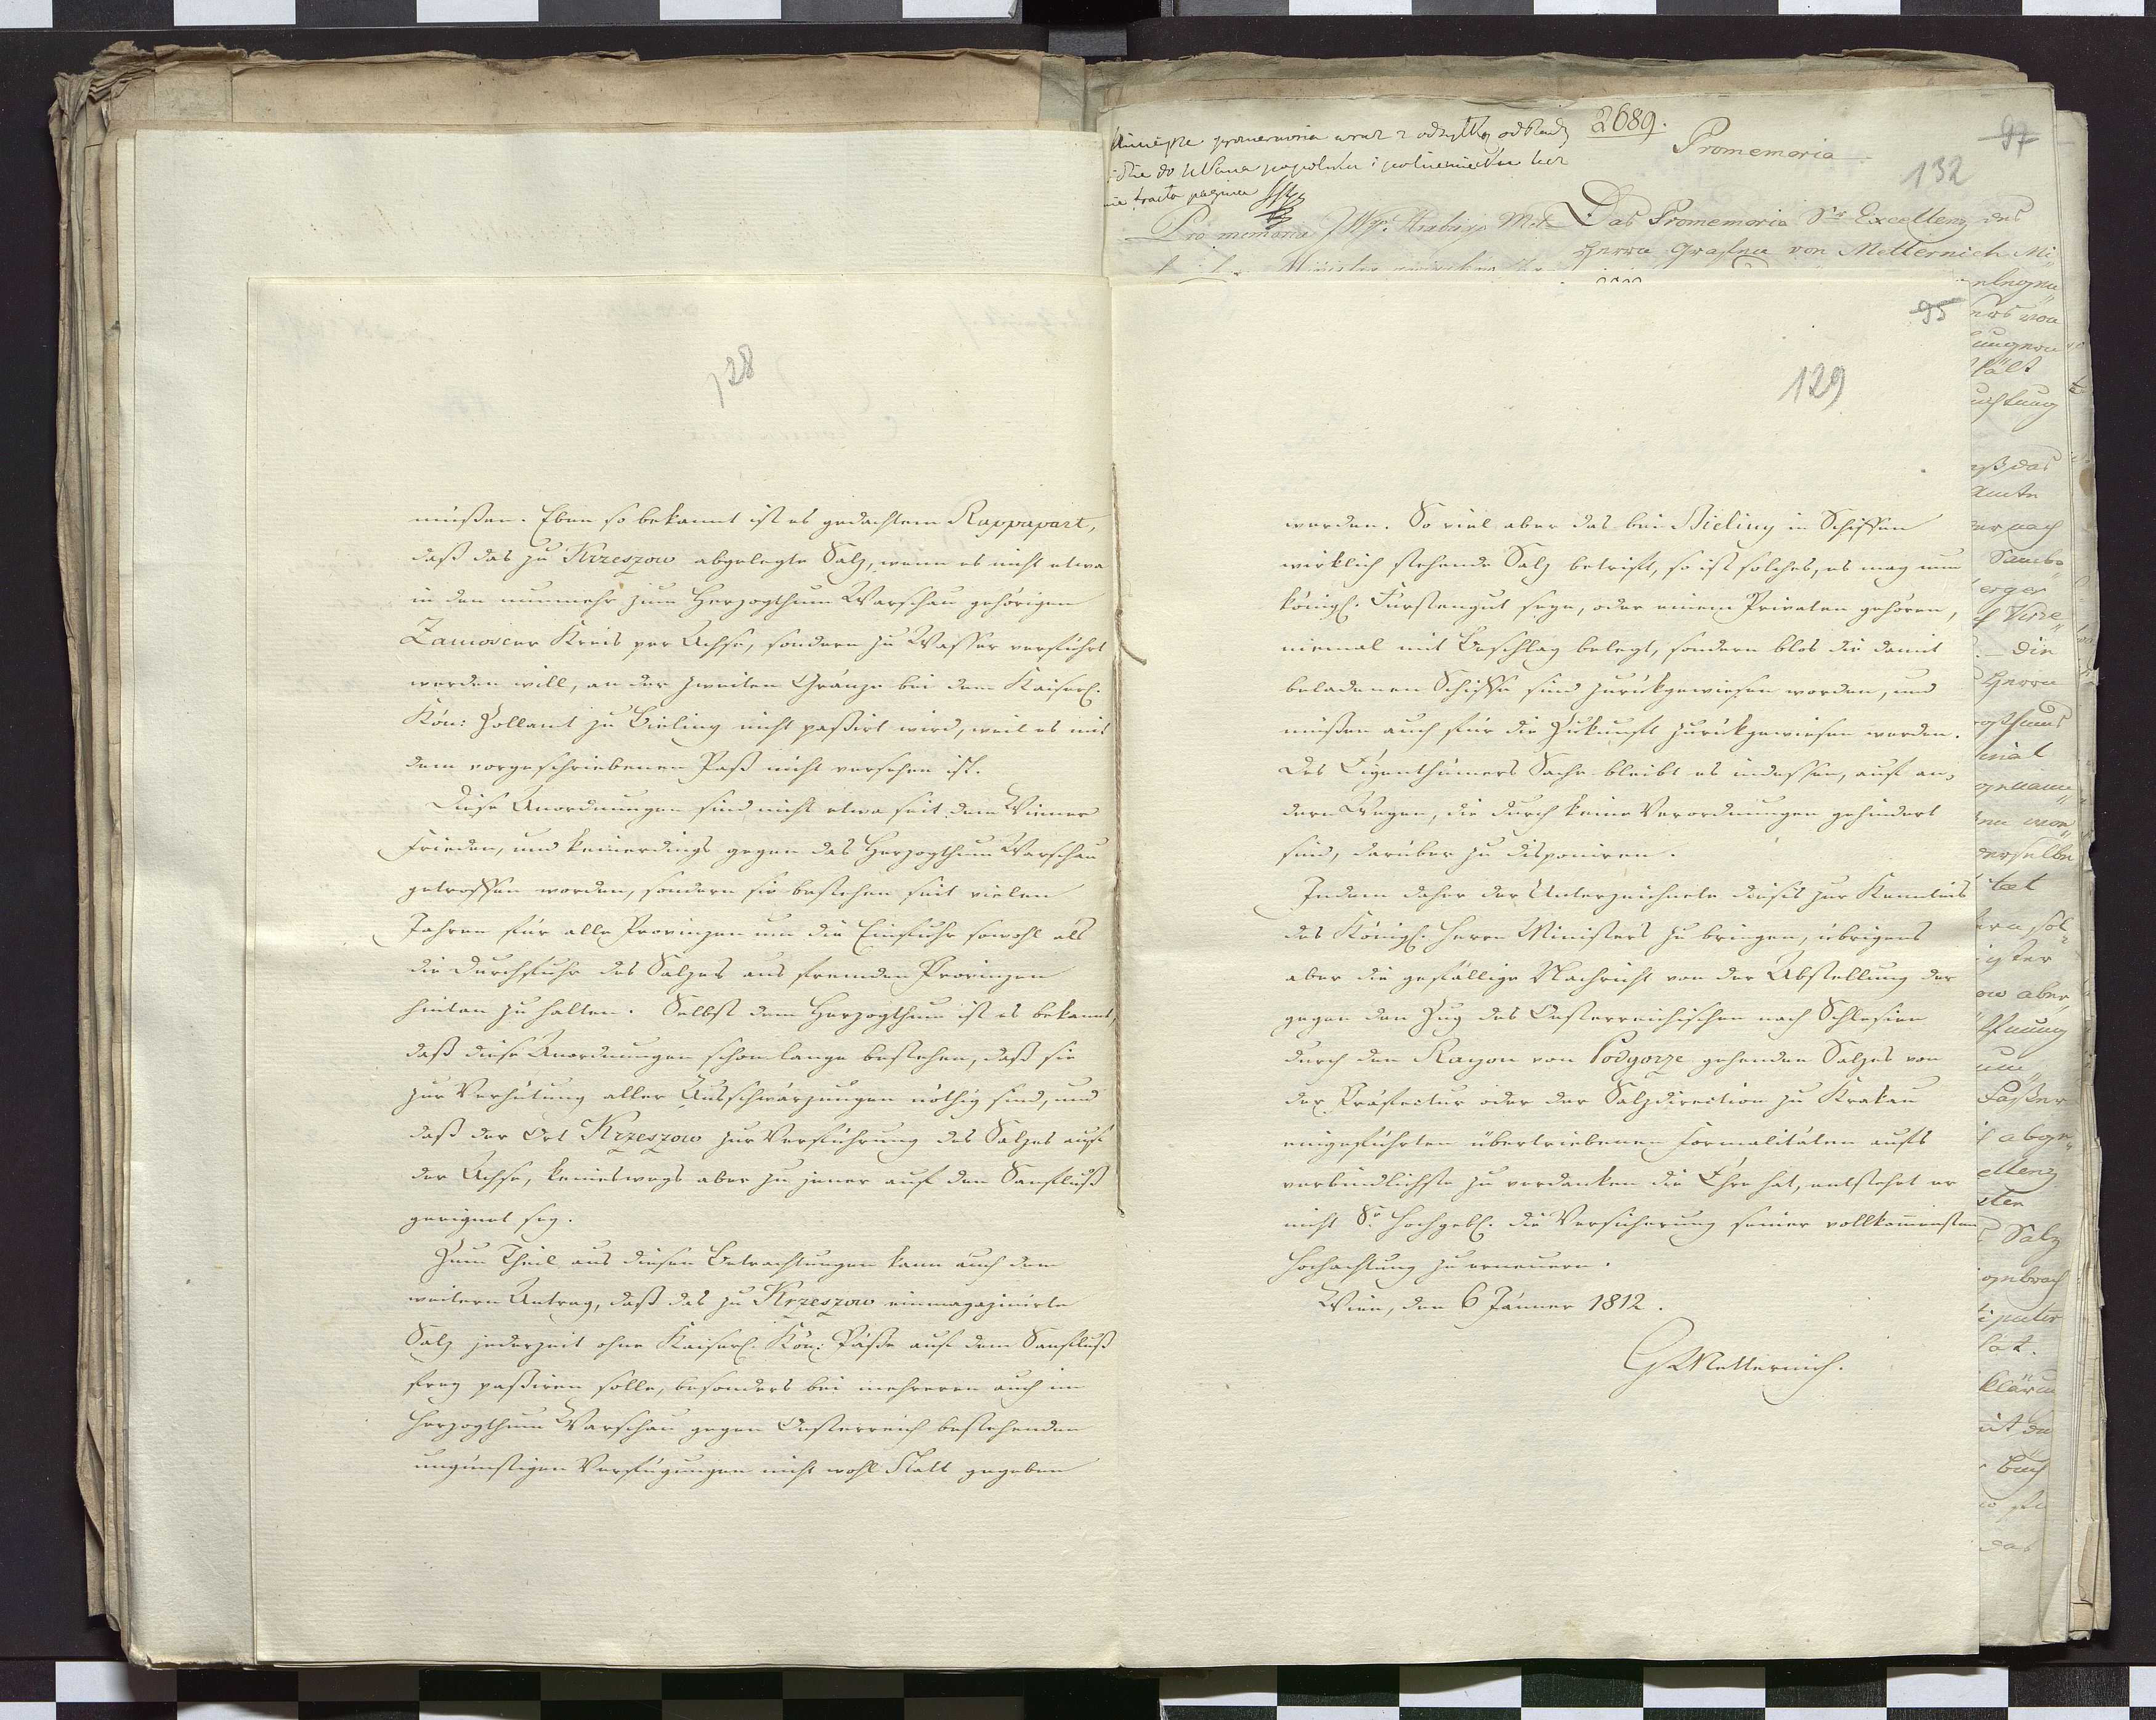 128
müßen. Eben so bekannt ist es gedachtem Rappapart,
daß das zu Krzeszow abgelegte Salz, wenn es nicht etwa
in den nunmehr zum Herzogthum Warschau gehörigen
Zamoscer Kreis per Achse, sondern zu Wasser verführt
werden will, an der zweiten Gränze bei dem Kaiserl.
Kön: Zollamt zu Bieling nicht paßirt wird, weil es mit
dem vorgeschriebenen Paß nicht versehen ist.
Diese Anordnungen sind nicht etwa seit dem Wiener
Frieden, und keinerdings gegen das Herzogthum Warschau
getroffen worden, sondern sie bestehen seit vielen
Jahren für alle Provinzen um die Einfuhr sowohl als
die Durchfuhr des Salzes aus fremden Provinzen
hintan zu halten. Selbst dem Herzogthum ist es bekannt,
daß diese Anordnungen schon lange bestehen, daß sie
zur Verhütung aller Ausschwärzungen nöthig sind, und
daß der Ort Krzeszow zur Verführung des Salzes auf
der Achse, keineswegs aber zu jener auf den Sanfluß
geeignet sey.
Zum Theil aus diesen Betrachtungen kann auch dem
weitern Antrag, daß das zu Krzeszow einmagazinirte
Salz jederzeit ohne Kaiserl. Kön: Päße auf dem Sanfluß
frey paßiren solle, besonders bei mehreren auch im
Herzogthum Warschau gegen Oesterreich bestehenden
ungünstigen Verfügungen nicht wohl Statt gegeben
2689.
Promemoria
97
132
Das Promemoria Sr Excellenz des
Herrn Grafen von Metternich Mi„
95
129
werden. So viel aber das bei Bieling in Schiffen
wirklich stehende Salz betrift, so ist solches, es mag nun
königl. Fürstengut seyn, oder einem Privaten gehören,
niemal mit Beschlag belegt, sondern blos die damit
beladenen Schiffe sind zurükgewiesen worden, und
müßen auch für die Zukunft zurükgewiesen werden.
Des Eigenthümers Sache bleibt es indessen, auf an„
dern Wegen, die durch keine Verordnungen gehindert
sind, darüber zu disponiren.
Indem daher der Unterzeichnete dieses zur Kenntnis
des Königl. Herrn Ministers zu bringen, übrigens
aber die gefällige Nachricht von der Abstellung der
gegen den Zug des Oesterreichischen nach Schlesien
durch den Rayon von Podgorze gehenden Salzes von
der Präfectur oder der Salzdirection zu Krakau
eingeführten übertriebenen Formalitäten aufs
verbindlichste zu verdanken die Ehre hat, entsteht er
nicht Sr Hochgebl. die Versicherung seiner vollkommensten
Hochachtung zu erneuern.
Wien, den 6 Jänner 1812.
G Metternich.